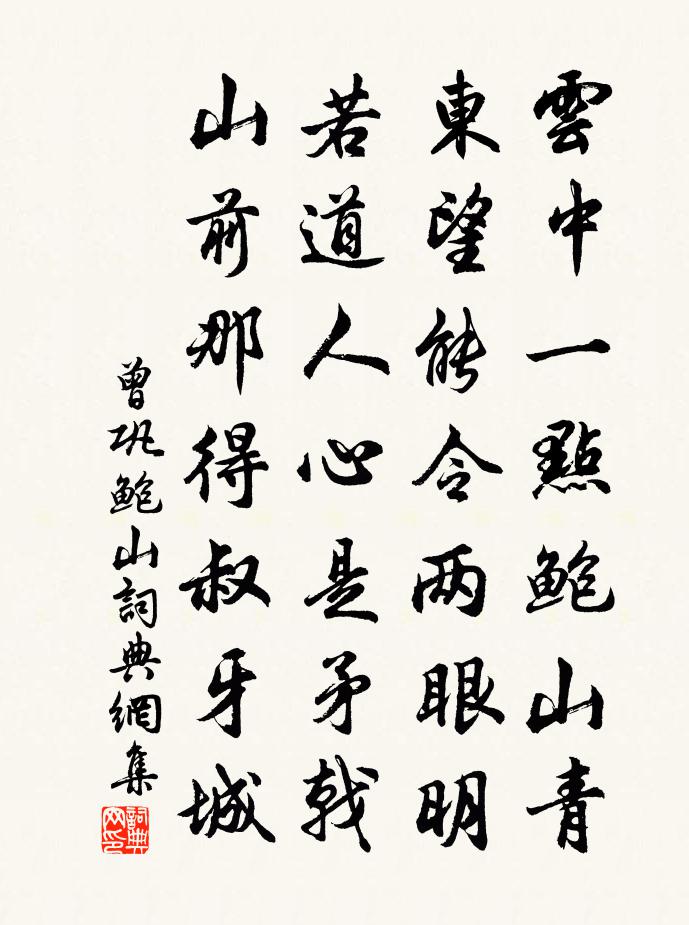 雲中一點鮑山青
東望能令两眼明
若道人心是矛戟
山前那得叔牙城
曾巩鮑山詞典網集
詞典
网印